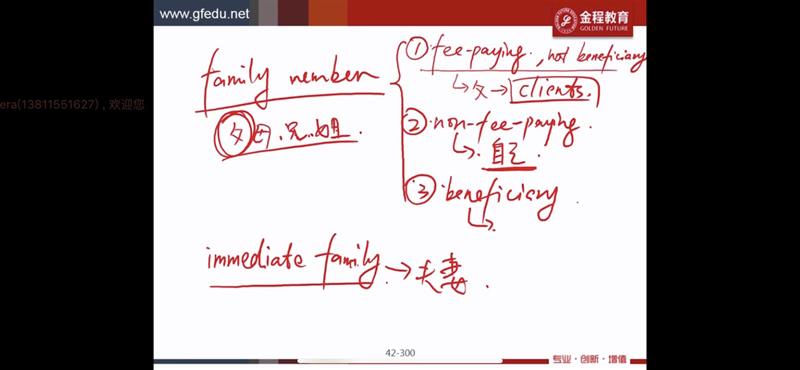 www.gfedu.net
金程教育
GOLDEN FUTURE
era(13811551627) , 欢迎您
family nember
父母.兄.姐.
①fee-paying., not beneficiary
↳父→clients.
②non-fee-paying.
↳.自己.
③beneficiary.
↳.
immediate family.→夫妻.
42-300
专业·创新·增值